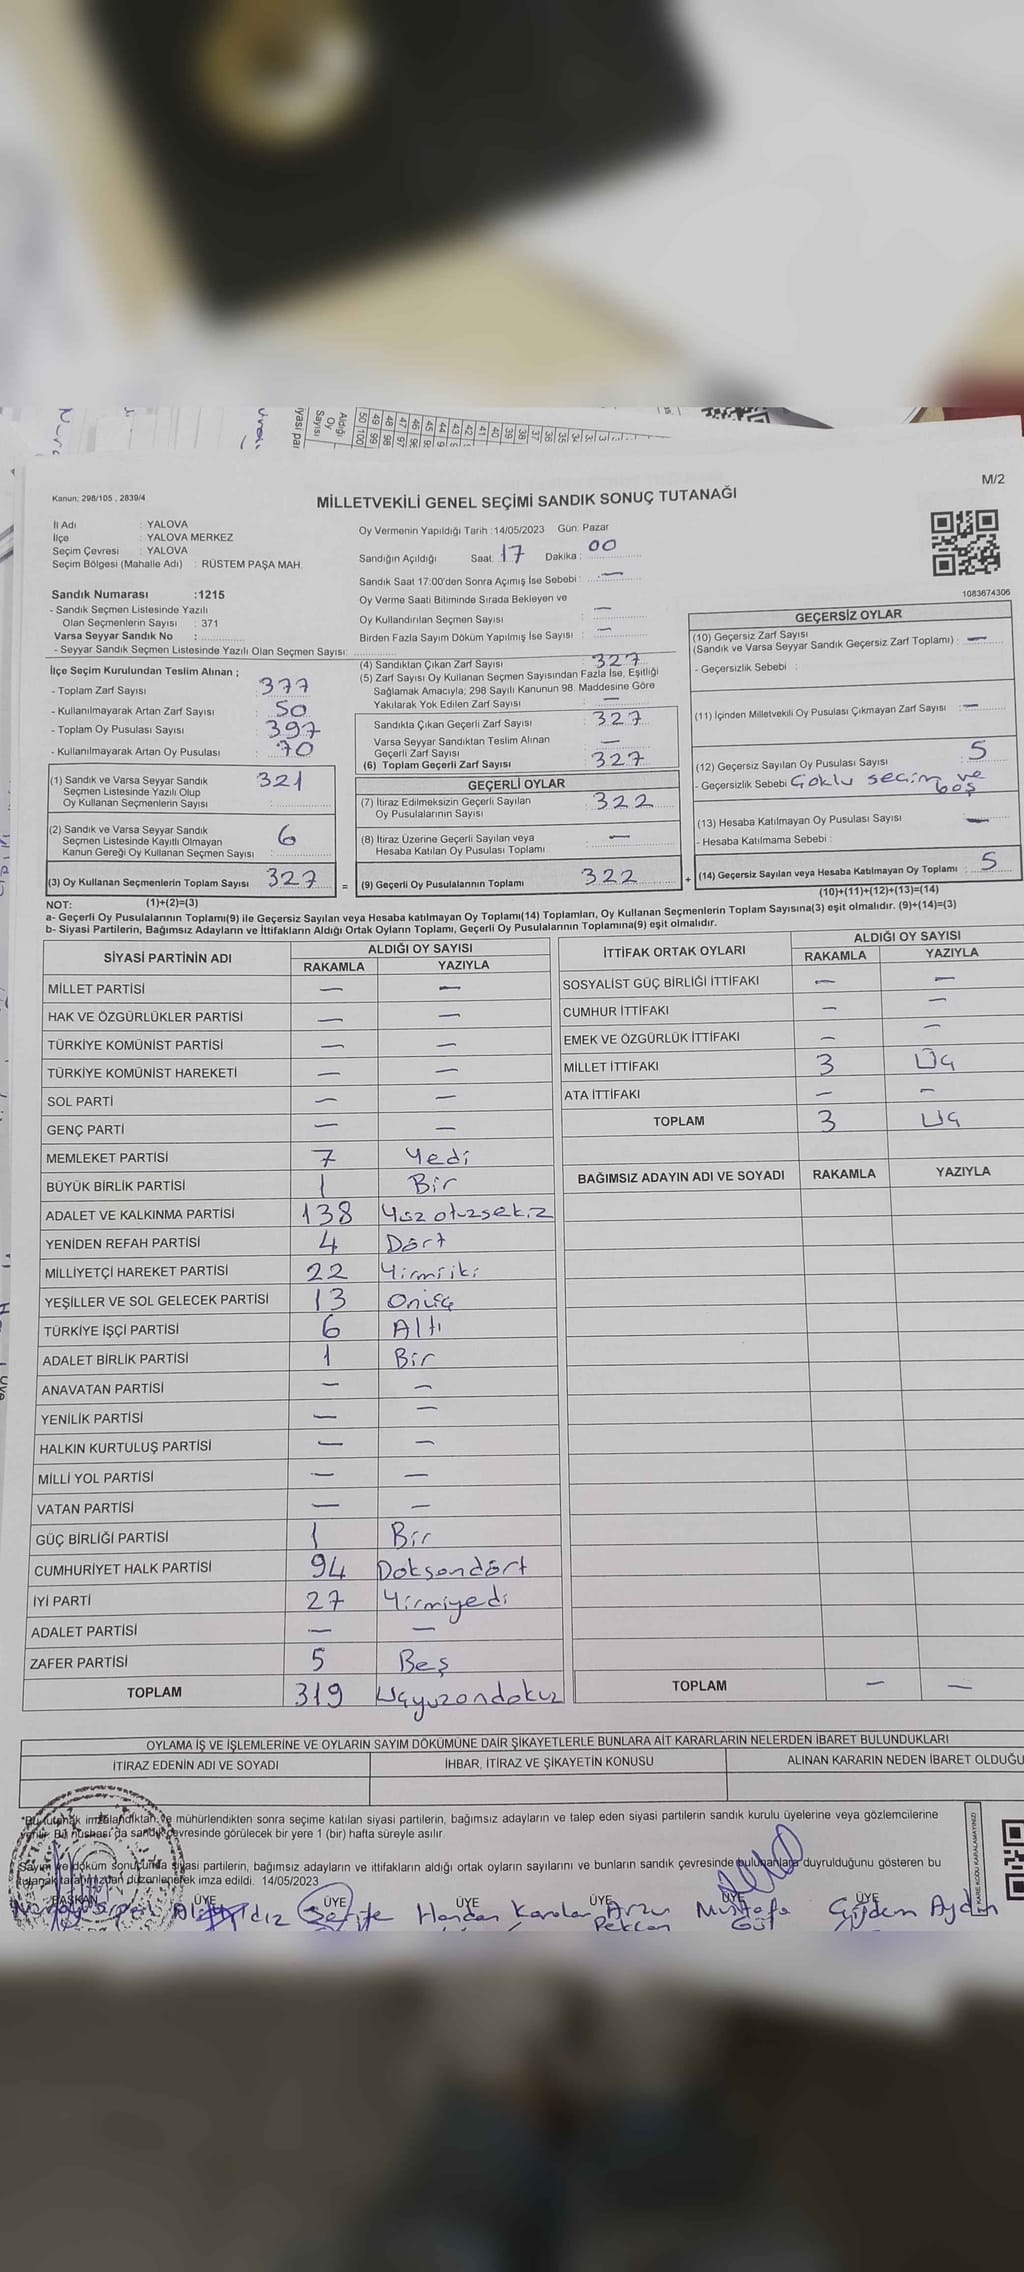 Kanun: 298/105 , 2839/4
MİLLETVEKİLİ GENEL SEÇİMİ SANDIK SONUÇ TUTANAĞI
M/2
İl Adı : YALOVA
İlçe : YALOVA MERKEZ
Seçim Çevresi : YALOVA
Seçim Bölgesi (Mahalle Adı) : RÜSTEM PAŞA MAH.
Sandık Numarası :1215
- Sandık Seçmen Listesinde Yazılı
Olan Seçmenlerin Sayısı : 371
Varsa Seyyar Sandık No :
- Seyyar Sandık Seçmen Listesinde Yazılı Olan Seçmen Sayısı:
Oy Vermenin Yapıldığı Tarih :14/05/2023 Gün: Pazar
Sandığın Açıldığı Saat: 17 Dakika : 00
Sandık Saat 17:00'den Sonra Açımış İse Sebebi : —
Oy Verme Saati Bitiminde Sırada Bekleyen ve
Oy Kullandırılan Seçmen Sayısı —
Birden Fazla Sayım Döküm Yapılmış İse Sayısı : —
1083674306
İlçe Seçim Kurulundan Teslim Alınan ;
- Toplam Zarf Sayısı 377
- Kullanılmayarak Artan Zarf Sayısı 50
- Toplam Oy Pusulası Sayısı 397
- Kullanılmayarak Artan Oy Pusulası 70
(1) Sandık ve Varsa Seyyar Sandık 321
Seçmen Listesinde Yazılı Olup
Oy Kullanan Seçmenlerin Sayısı
(2) Sandık ve Varsa Seyyar Sandık 6
Seçmen Listesinde Kayıtlı Olmayan
Kanun Gereği Oy Kullanan Seçmen Sayısı
(3) Oy Kullanan Seçmenlerin Toplam Sayısı 327
(4) Sandıktan Çıkan Zarf Sayısı 327
(5) Zarf Sayısı Oy Kullanan Seçmen Sayısından Fazla İse, Eşitliği
Sağlamak Amacıyla; 298 Sayılı Kanunun 98. Maddesine Göre
Yakılarak Yok Edilen Zarf Sayısı —
Sandıkta Çıkan Geçerli Zarf Sayısı 327
Varsa Seyyar Sandıktan Teslim Alınan —
Geçerli Zarf Sayısı
(6) Toplam Geçerli Zarf Sayısı 327
GEÇERLİ OYLAR
(7) İtiraz Edilmeksizin Geçerli Sayılan 322
Oy Pusulalarının Sayısı
(8) İtiraz Üzerine Geçerli Sayılan veya —
Hesaba Katılan Oy Pusulası Toplamı
= (9) Geçerli Oy Pusulalarının Toplamı 322 +
GEÇERSİZ OYLAR
(10) Geçersiz Zarf Sayısı
(Sandık ve Varsa Seyyar Sandık Geçersiz Zarf Toplamı) : —
- Geçersizlik Sebebi :
(11) İçinden Milletvekili Oy Pusulası Çıkmayan Zarf Sayısı : —
(12) Geçersiz Sayılan Oy Pusulası Sayısı : 5
- Geçersizlik Sebebi Çoklu seçim ve
boş
(13) Hesaba Katılmayan Oy Pusulası Sayısı : —
- Hesaba Katılmama Sebebi :
(14) Geçersiz Sayılan veya Hesaba Katılmayan Oy Toplamı : 5
(10)+(11)+(12)+(13)=(14)
NOT: (1)+(2)=(3)
a- Geçerli Oy Pusulalarının Toplamı(9) ile Geçersiz Sayılan veya Hesaba katılmayan Oy Toplamı(14) Toplamları, Oy Kullanan Seçmenlerin Toplam Sayısına(3) eşit olmalıdır. (9)+(14)=(3)
b- Siyasi Partilerin, Bağımsız Adayların ve İttifakların Aldığı Ortak Oyların Toplamı, Geçerli Oy Pusulalarının Toplamına(9) eşit olmalıdır.
SİYASİ PARTİNİN ADI ALDIĞI OY SAYISI
RAKAMLA YAZIYLA
MİLLET PARTİSİ — —
HAK VE ÖZGÜRLÜKLER PARTİSİ — —
TÜRKİYE KOMÜNİST PARTİSİ — —
TÜRKİYE KOMÜNİST HAREKETİ — —
SOL PARTİ — —
GENÇ PARTİ — —
MEMLEKET PARTİSİ 7 Yedi
BÜYÜK BİRLİK PARTİSİ 1 Bir
ADALET VE KALKINMA PARTİSİ 138 Yüzotuzsekiz
YENİDEN REFAH PARTİSİ 4 Dört
MİLLİYETÇİ HAREKET PARTİSİ 22 Yirmiiki
YEŞİLLER VE SOL GELECEK PARTİSİ 13 Onüç
TÜRKİYE İŞÇİ PARTİSİ 6 Altı
ADALET BİRLİK PARTİSİ 1 Bir
ANAVATAN PARTİSİ — —
YENİLİK PARTİSİ — —
HALKIN KURTULUŞ PARTİSİ — —
MİLLİ YOL PARTİSİ — —
VATAN PARTİSİ — —
GÜÇ BİRLİĞİ PARTİSİ 1 Bir
CUMHURİYET HALK PARTİSİ 94 Doksandört
İYİ PARTİ 27 Yirmiyedi
ADALET PARTİSİ — —
ZAFER PARTİSİ 5 Beş
TOPLAM 319 Üçyüzondokuz
İTTİFAK ORTAK OYLARI ALDIĞI OY SAYISI
RAKAMLA YAZIYLA
SOSYALİST GÜÇ BİRLİĞİ İTTİFAKI — —
CUMHUR İTTİFAKI — —
EMEK VE ÖZGÜRLÜK İTTİFAKI — —
MİLLET İTTİFAKI 3 Üç
ATA İTTİFAKI — —
TOPLAM 3 Üç
BAĞIMSIZ ADAYIN ADI VE SOYADI RAKAMLA YAZIYLA
TOPLAM — —
OYLAMA İŞ VE İŞLEMLERİNE VE OYLARIN SAYIM DÖKÜMÜNE DAİR ŞİKAYETLERLE BUNLARA AİT KARARLARIN NELERDEN İBARET BULUNDUKLARI
İTİRAZ EDENİN ADI VE SOYADI İHBAR, İTİRAZ VE ŞİKAYETİN KONUSU ALINAN KARARIN NEDEN İBARET OLDUĞU
*Bu tutanak imzalandıktan ve mühürlendikten sonra seçime katılan siyasi partilerin, bağımsız adayların ve talep eden siyasi partilerin sandık kurulu üyelerine veya gözlemcilerine
verilir. Bir nüshası da sandık çevresinde görülecek bir yere 1 (bir) hafta süreyle asılır.
Sayım ve döküm sonucunda siyasi partilerin, bağımsız adayların ve ittifakların aldığı ortak oyların sayılarını ve bunların sandık çevresinde bulunanlara duyrulduğunu gösteren bu
tutanak tarafımızdan düzenlenerek imza edildi. 14/05/2023
BAŞKAN ÜYE ÜYE ÜYE ÜYE ÜYE ÜYE
Handan Karalar Arzu Pekcan Mustafa Gül Çiğdem Aydın
KARE KODU KARALAMAYINIZ!